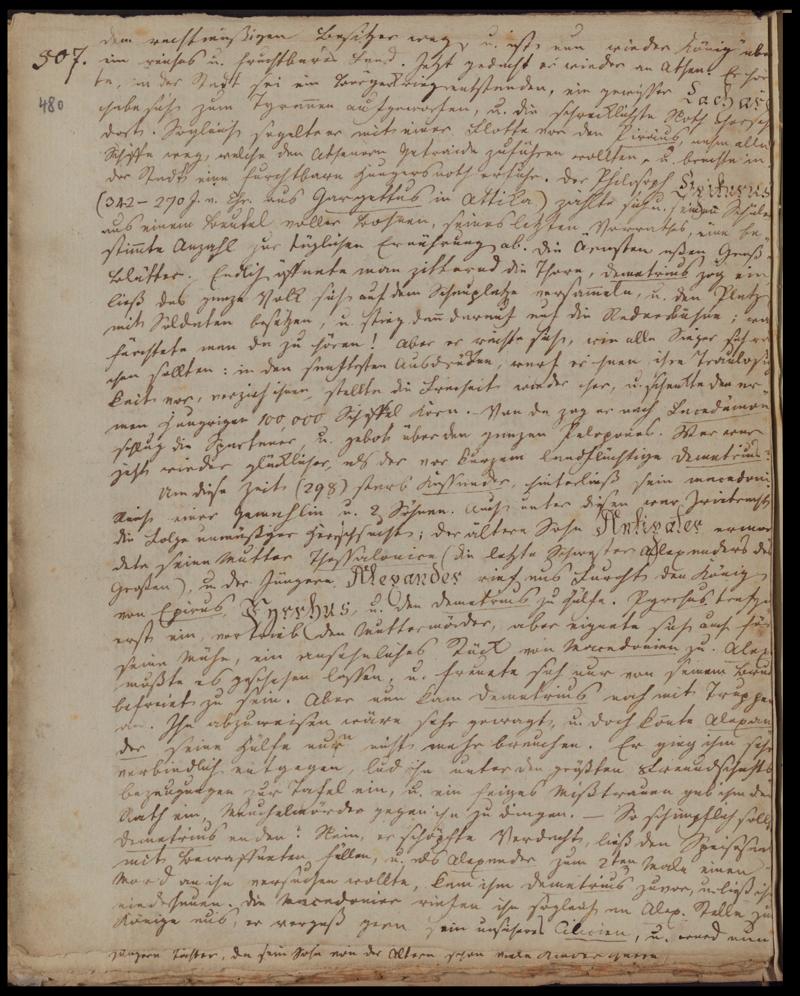 507.
480
dem rechtmäßigen Besitzer weg, u. ist nun wieder König über
ein reiches u. fruchtbares Land. Jetzt gedacht er wieder an Athen. Er hör-
te, in der Stadt sei ein Bürgerkrieg entstanden, ein gewisser Lachares
habe sich zum Tyrannen aufgeworfen, u. die schrecklichste Noth herrsche
dort. Sogleich segelte er mit einer Flotte vor den Piräus, nahm alle
Schiffe weg, welche den Athenern Getraide zuführen wollten, u. brachte in
der Stadt eine furchtbare Hungersnoth hervor. Der Philosoph Epikurus
(342–270 J. v. Chr. aus Gargettus in Attika) zählte sich u. seinen Schülern
aus einem Beutel voller Bohnen, seines letzten Vorraths, eine be-
stimmte Anzahl zur täglichen Ernährung ab. Die Aermsten aßen Gras,
Blätter. Endlich öffnete man zitternd die Thore, Demetrius zog ein
ließ das ganze Volk sich auf dem Schauplatze versammeln, u. den Platz
mit Soldaten besetzen, u. stieg dann darauf auf die Rednerbühne; was
fürchtete man da zu hören! Aber er rächte sich, wie alle Sieger sich rä-
chen sollten: in den sanftesten Ausdrücken, warf er ihnen ihre Treulosig-
keit vor, verzieh ihnen, stellte die Freiheit wieder her, u. schenkte den ar-
men Hungrigen 100,000 Scheffel Korn. Von da zog er nach Lacedämon
schlug die Spartaner, u. gebot über den ganzen Peloponnes. Wer war
jetzt wieder glücklicher, als der vor kurzem landflüchtige Demetrius?
Um diese Zeit (298) starb Kassander, hinterließ sein macedoni.
Reich einer Gemahlin u. 2 Söhnen. Auch unter diesen war Zwietracht
die Folge unmäßiger Herrschsucht; der ältere Sohn Antipater ermor-
dete seine Mutter Thessalonice (die letzte Schwester Alexanders des
Großen), u. der Jüngere Alexander rief aus Furcht den König
von Epirus, Pyrrhus, u. den Demetrius zu Hülfe. Pyrrhus traf zu-
erst ein, vertrieb den Muttermörder, aber eignete sich auch für
seine Mühe, ein ansehnliches Stück von Macedonien zu. Alex.
mußte es geschehen lassen, u. freute sich nur von seinem Bruder
befreiet zu sein. Aber nun kam Demetrius noch mit Truppen
an. Ihn abzuweisen wäre sehr gewagt, u. doch konnte Alexan-
der seine Hülfe nun nicht mehr brauchen. Er ging ihm sehr
verbindlich entgegen, lud ihn unter den größten Freundschafts-
bezeugungen zur Tafel ein, u. ein feiges Mißtrauen gab ihm den
Rath ein, Meuchelmörder gegen ihn zu dingen. – So schimpflich sollte
Demetrius enden? Nein, er schöpfte Verdacht, ließ den Speisesaal
mit Bewaffneten füllen, u. als Alexander zum 2ten Male einen
Mord an ihm versuchen wollte, kam ihm Demetrius zuvor, u. ließ ihn
niederhauen. Die Macedonier riefen ihn sogleich an Alex. Stelle zum
Könige aus, er vergaß gern sein unsicheres Cilicien, u. ward nun
jüngern Tochter, da sein Sohn von der Altern schon viele Kinder hatte